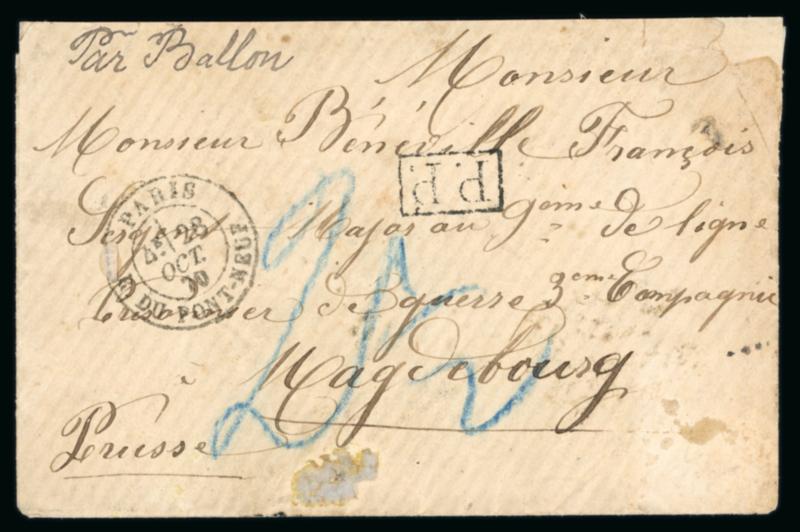 Par Ballon
Monsieur
Monsieur Bénéville François
P.P.
Sergent Major au 9eme de ligne
Prisonnier de guerre 3eme Compagnie
à Magdebourg
Prusse
PARIS
4E 28
OCT.
70
R. DU PONT-NEUF